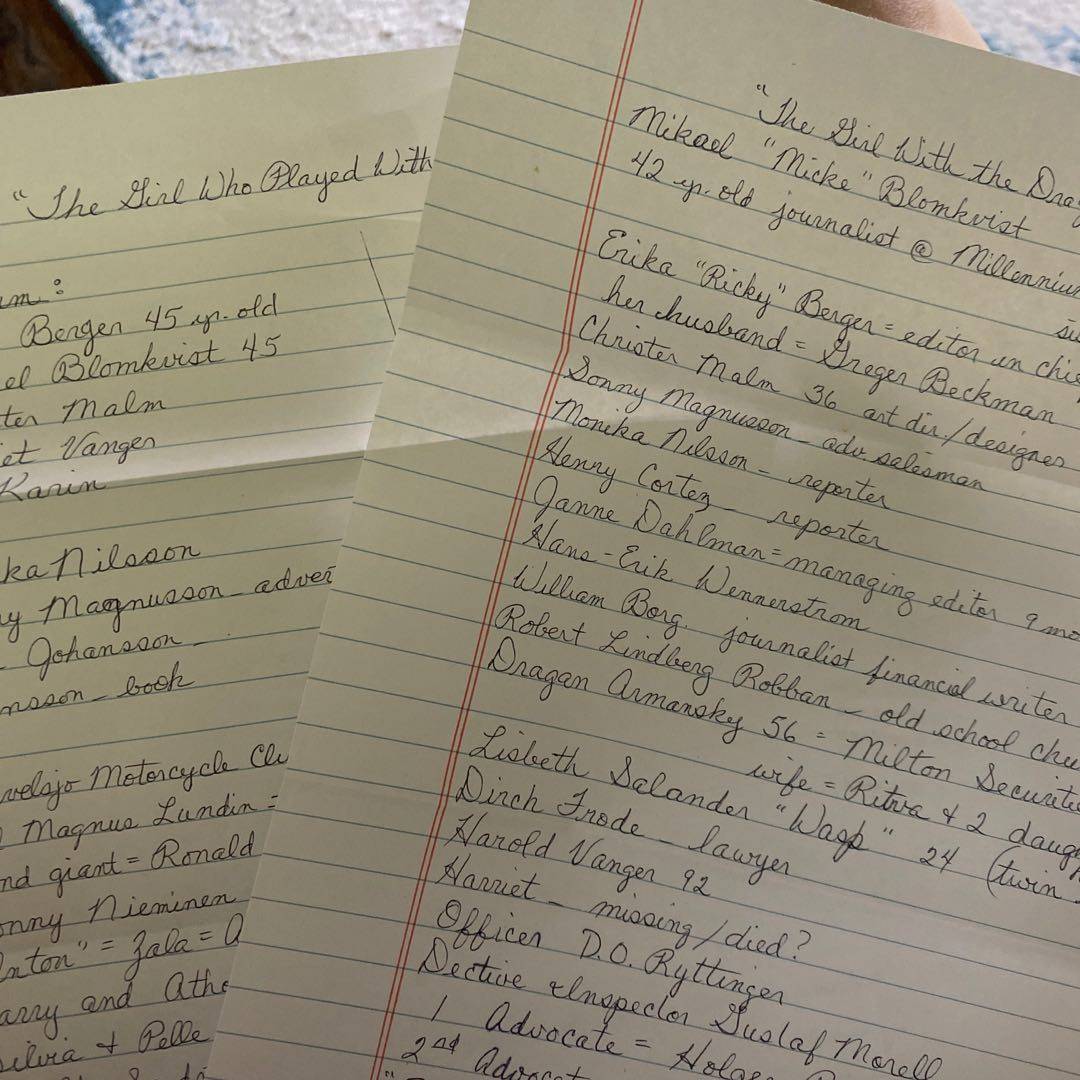 "The Girl Who Played With
um:
Berger 45 yr. old
el Blomkvist 45
ter Malm
et Vanger
Karin
ka Nilsson
ny Magnusson - adver
- Johansson -
nsson - book
velsjo Motorcycle Clu
Magnus Lundin =
nd giant = Ronald
onny Nieminen
nton" = Zala = A
arry and Athe
ilvia + Pelle
"The Girl With the Drag
Mikael "Micke" Blomkvist
42 yr. old journalist @ Millennium
Erika "Ricky" Berger = editor in chie
her husband = Greger Beckman
Christer Malm 36 art dir/designer
Sonny Magnusson - adv. salesman
Monika Nilsson - reporter
Henny Cortez - reporter
Janne Dahlman = managing editor 9 mo
Hans-Erik Wennerstrom
William Borg. journalist financial writer
Robert Lindberg Robban - old school chu
Dragan Armansky 56 = Milton Securiti
wife = Ritva & 2 daugh
Lisbeth Salander "Wasp" 24 (twin
Dirch Frode - lawyer
Harold Vanger 92
Harriet - missing/died?
Officer D.O. Ryttinger
Dective Inspector Gustaf Morell
1 Advocate = Holger
2nd Advocat